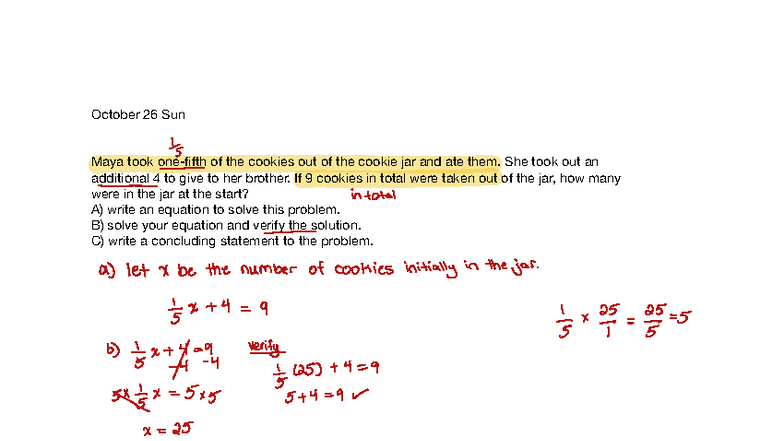 October 26 Sun
1/5
Maya took one-fifth of the cookies out of the cookie jar and ate them. She took out an
additional 4 to give to her brother. If 9 cookies in total were taken out of the jar, how many
were in the jar at the start?
in total
A) write an equation to solve this problem.
B) solve your equation and verify the solution.
C) write a concluding statement to the problem.
a) let x be the number of cookies initially in the jar.
1/5 x + 4 = 9
1/5 × 25/1 = 25/5 = 5
b) 1/5 x + 4 = 9
-4 -4
5 × 1/5 x = 5 × 5
x = 25
verify
1/5 (25) + 4 = 9
5 + 4 = 9 ✓